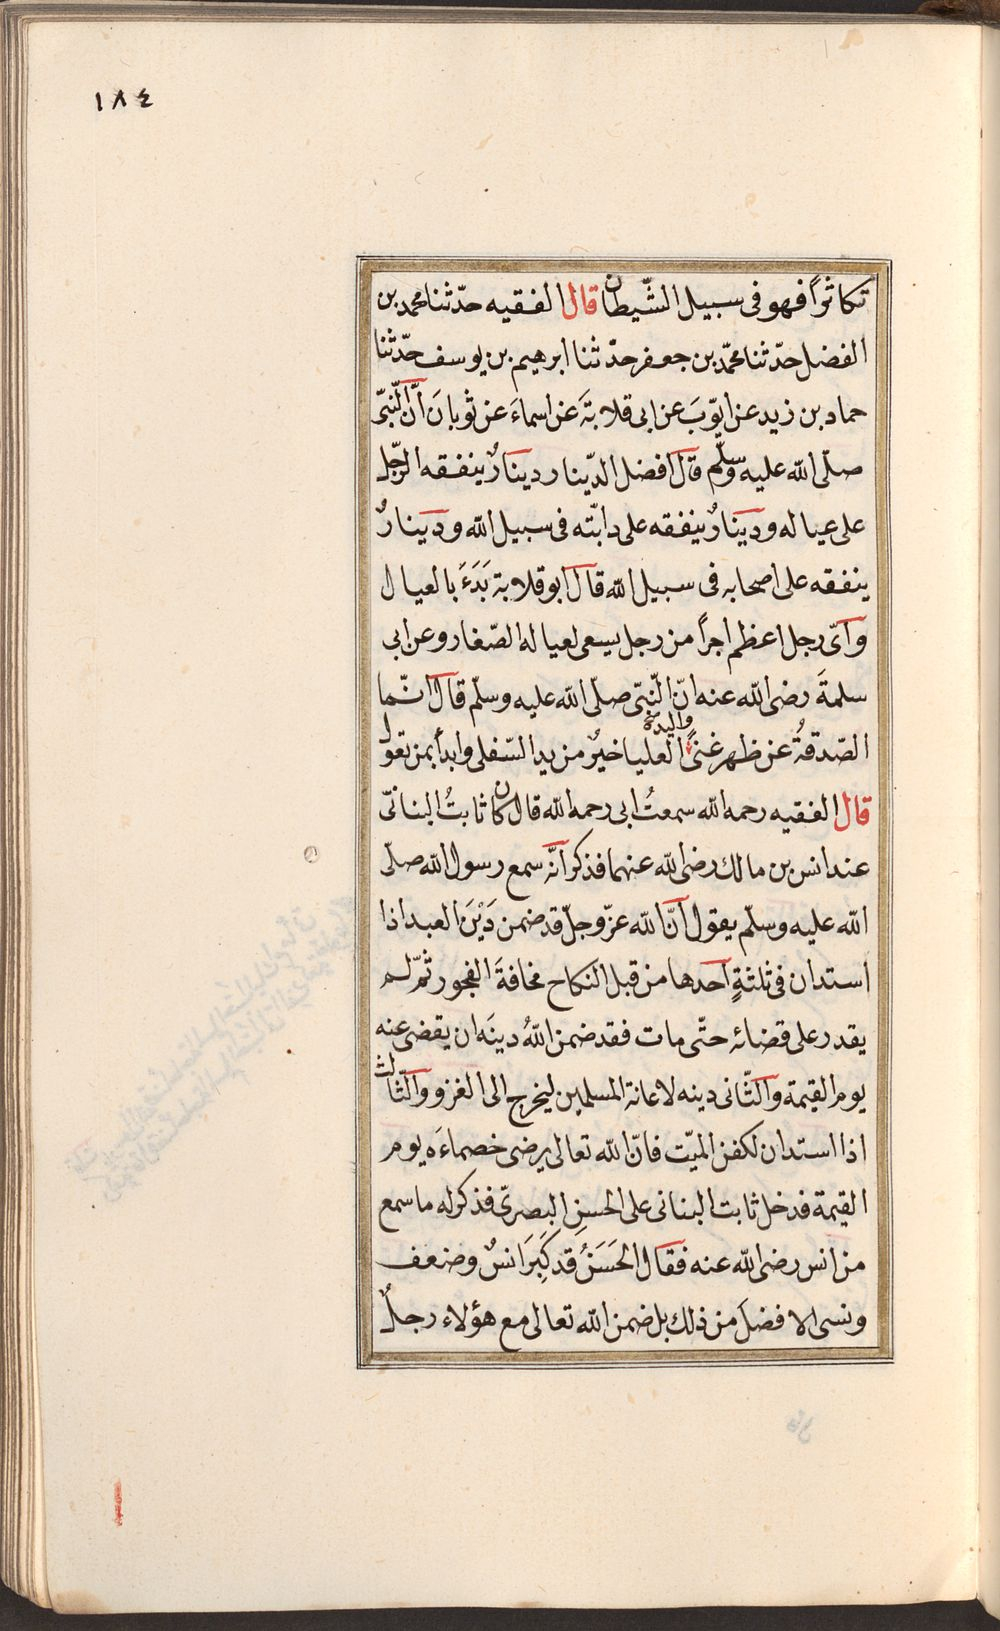 ١٨٤
تكاثراً فهو فى سبيل الشّيطان قال الفقيه حدّثنا محمد بن
الفضل حدّثنا محمّد بن جعفر حدّثنا ابرهيم بن يوسف حدّثنا
حماد بن زيد عن ايّوبَ عن ابى قلابةَ عن اسماءَ عن ثوبانَ أنّ النّبىّ
صلّى الله عليه وسلّم قال افضل الدّينار دينارٌ ينفقه الرّجل
على عياله ودينارٌ ينفقه على دابّته فى سبيل الله ودينارٌ
ينفقه على اصحابه فى سبيل الله قال ابو قلابة بَدَءَ بالعيال
واىّ رجل اعظم اجراً من رجل يسعى لعياله الصّغار وعن ابى
سلمةَ رضى الله عنه انّ النّبىّ صلّى الله عليه وسلّم قال انّما
الصّدقةُ عن ظهر غنىً واليدة العليا خيرٌ من يد السّفلى وابدأ بمن تعول
قال الفقيه رحمه الله سمعتُ ابى رحمه الله قال كان ثابتُ البنانىّ
عند انس بن مالك رضى الله عنهما فذكر انّه سمع رسول الله صلّى
الله عليه وسلّم يقول انّ الله عزّ وجلّ قد ضمن دَيْنَ العبد اذا
استدان فى ثلثةٍ احدها من قبل النكاح مخافةَ الفجور ثمّ لم
يقدر على قضائه حتّى مات فقد ضمن اللهُ دينَه ان يقضى عنه
يوم القيمة والثّانى دينه لاعانة المسلمين ليخرج الى الغزو والثّالث
اذا استدان لكفن الميّت فانّ الله تعالى يرضى خصماءَه يوم
القيمة فدخل ثابت البنانى على الحسنِ البصرىّ فذكر له ما سمع
من انس رضى الله عنه فقال الحَسَنُ قد كَبِرَ انسٌ وضعف
ونسى الافضل من ذلك بل ضمن الله تعالى مع هؤلاء رجلٌ